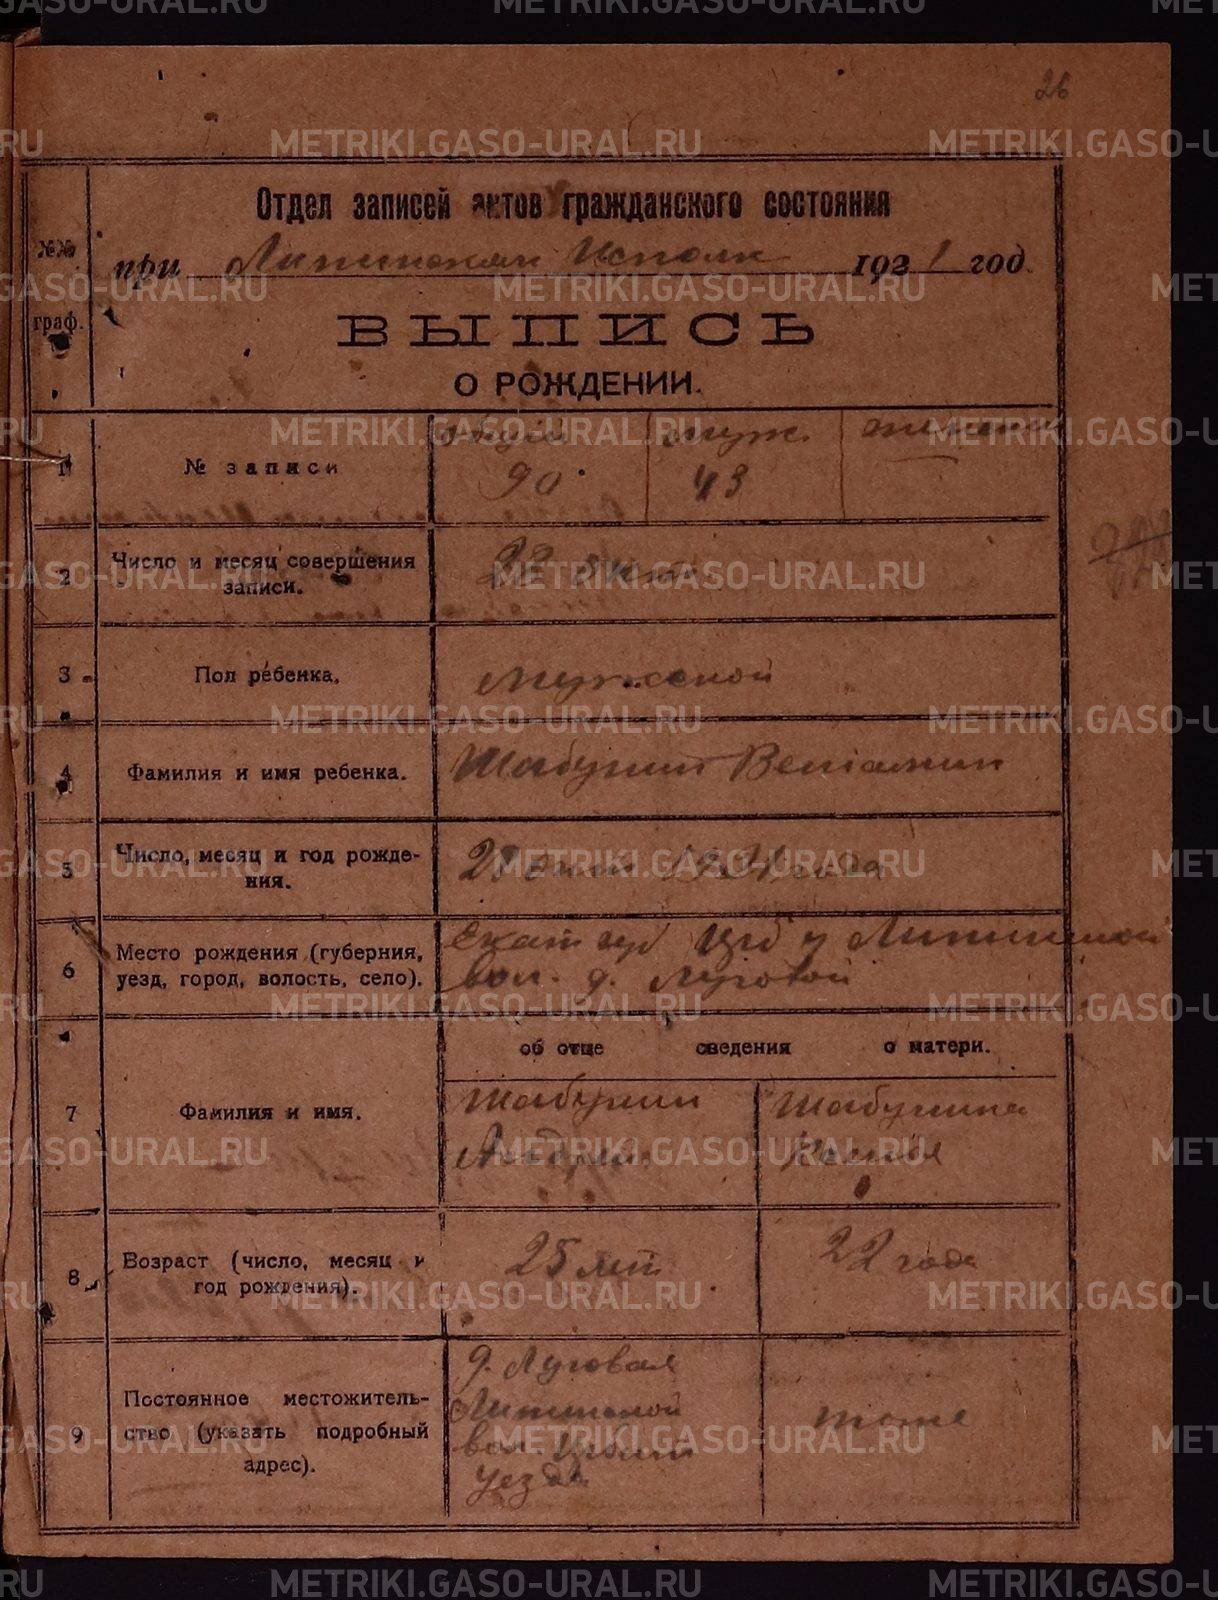 26
Отдел записей актов гражданского состояния
№№ граф.
при Липинском Исполк 1921 год.
ВЫПИСЬ
О РОЖДЕНИИ.
общий муж. женский
1 № записи 90 43
2 Число и месяц совершения
записи. 22 окт
3 Пол ребенка. мужской
4 Фамилия и имя ребенка. Шабунин Вениамин
5 Число, месяц и год рожде-
ния. окт 1921 года
6 Место рождения (губерния,
уезд, город, волость, село).
Екат губ Ирб у Липинской
вол. д. Луговой
об отце сведения о матери.
7 Фамилия и имя.
Шабунин Шабунина
Андрей
8 Возраст (число, месяц и
год рождения).
25 лет 22 года
9 Постоянное местожитель-
ство (указать подробный
адрес).
д. Луговая
Липинской
вол. Ирбит
уезда
тоже
METRIKI.GASO-URAL.RU